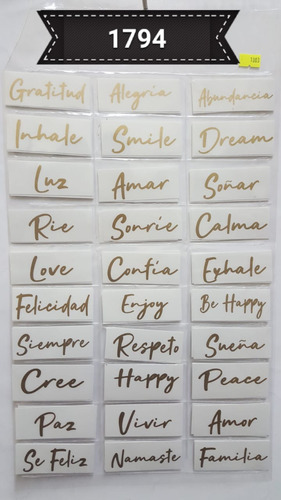 1794
Gratitud Alegria Abundancia
Inhale Smile Dream
Luz Amar Soñar
Rie Sonríe Calma
Love Confía Exhale
Felicidad Enjoy Be Happy
Siempre Respeto Sueña
Cree Happy Peace
Paz Vivir Amor
Se Feliz Namaste Familia